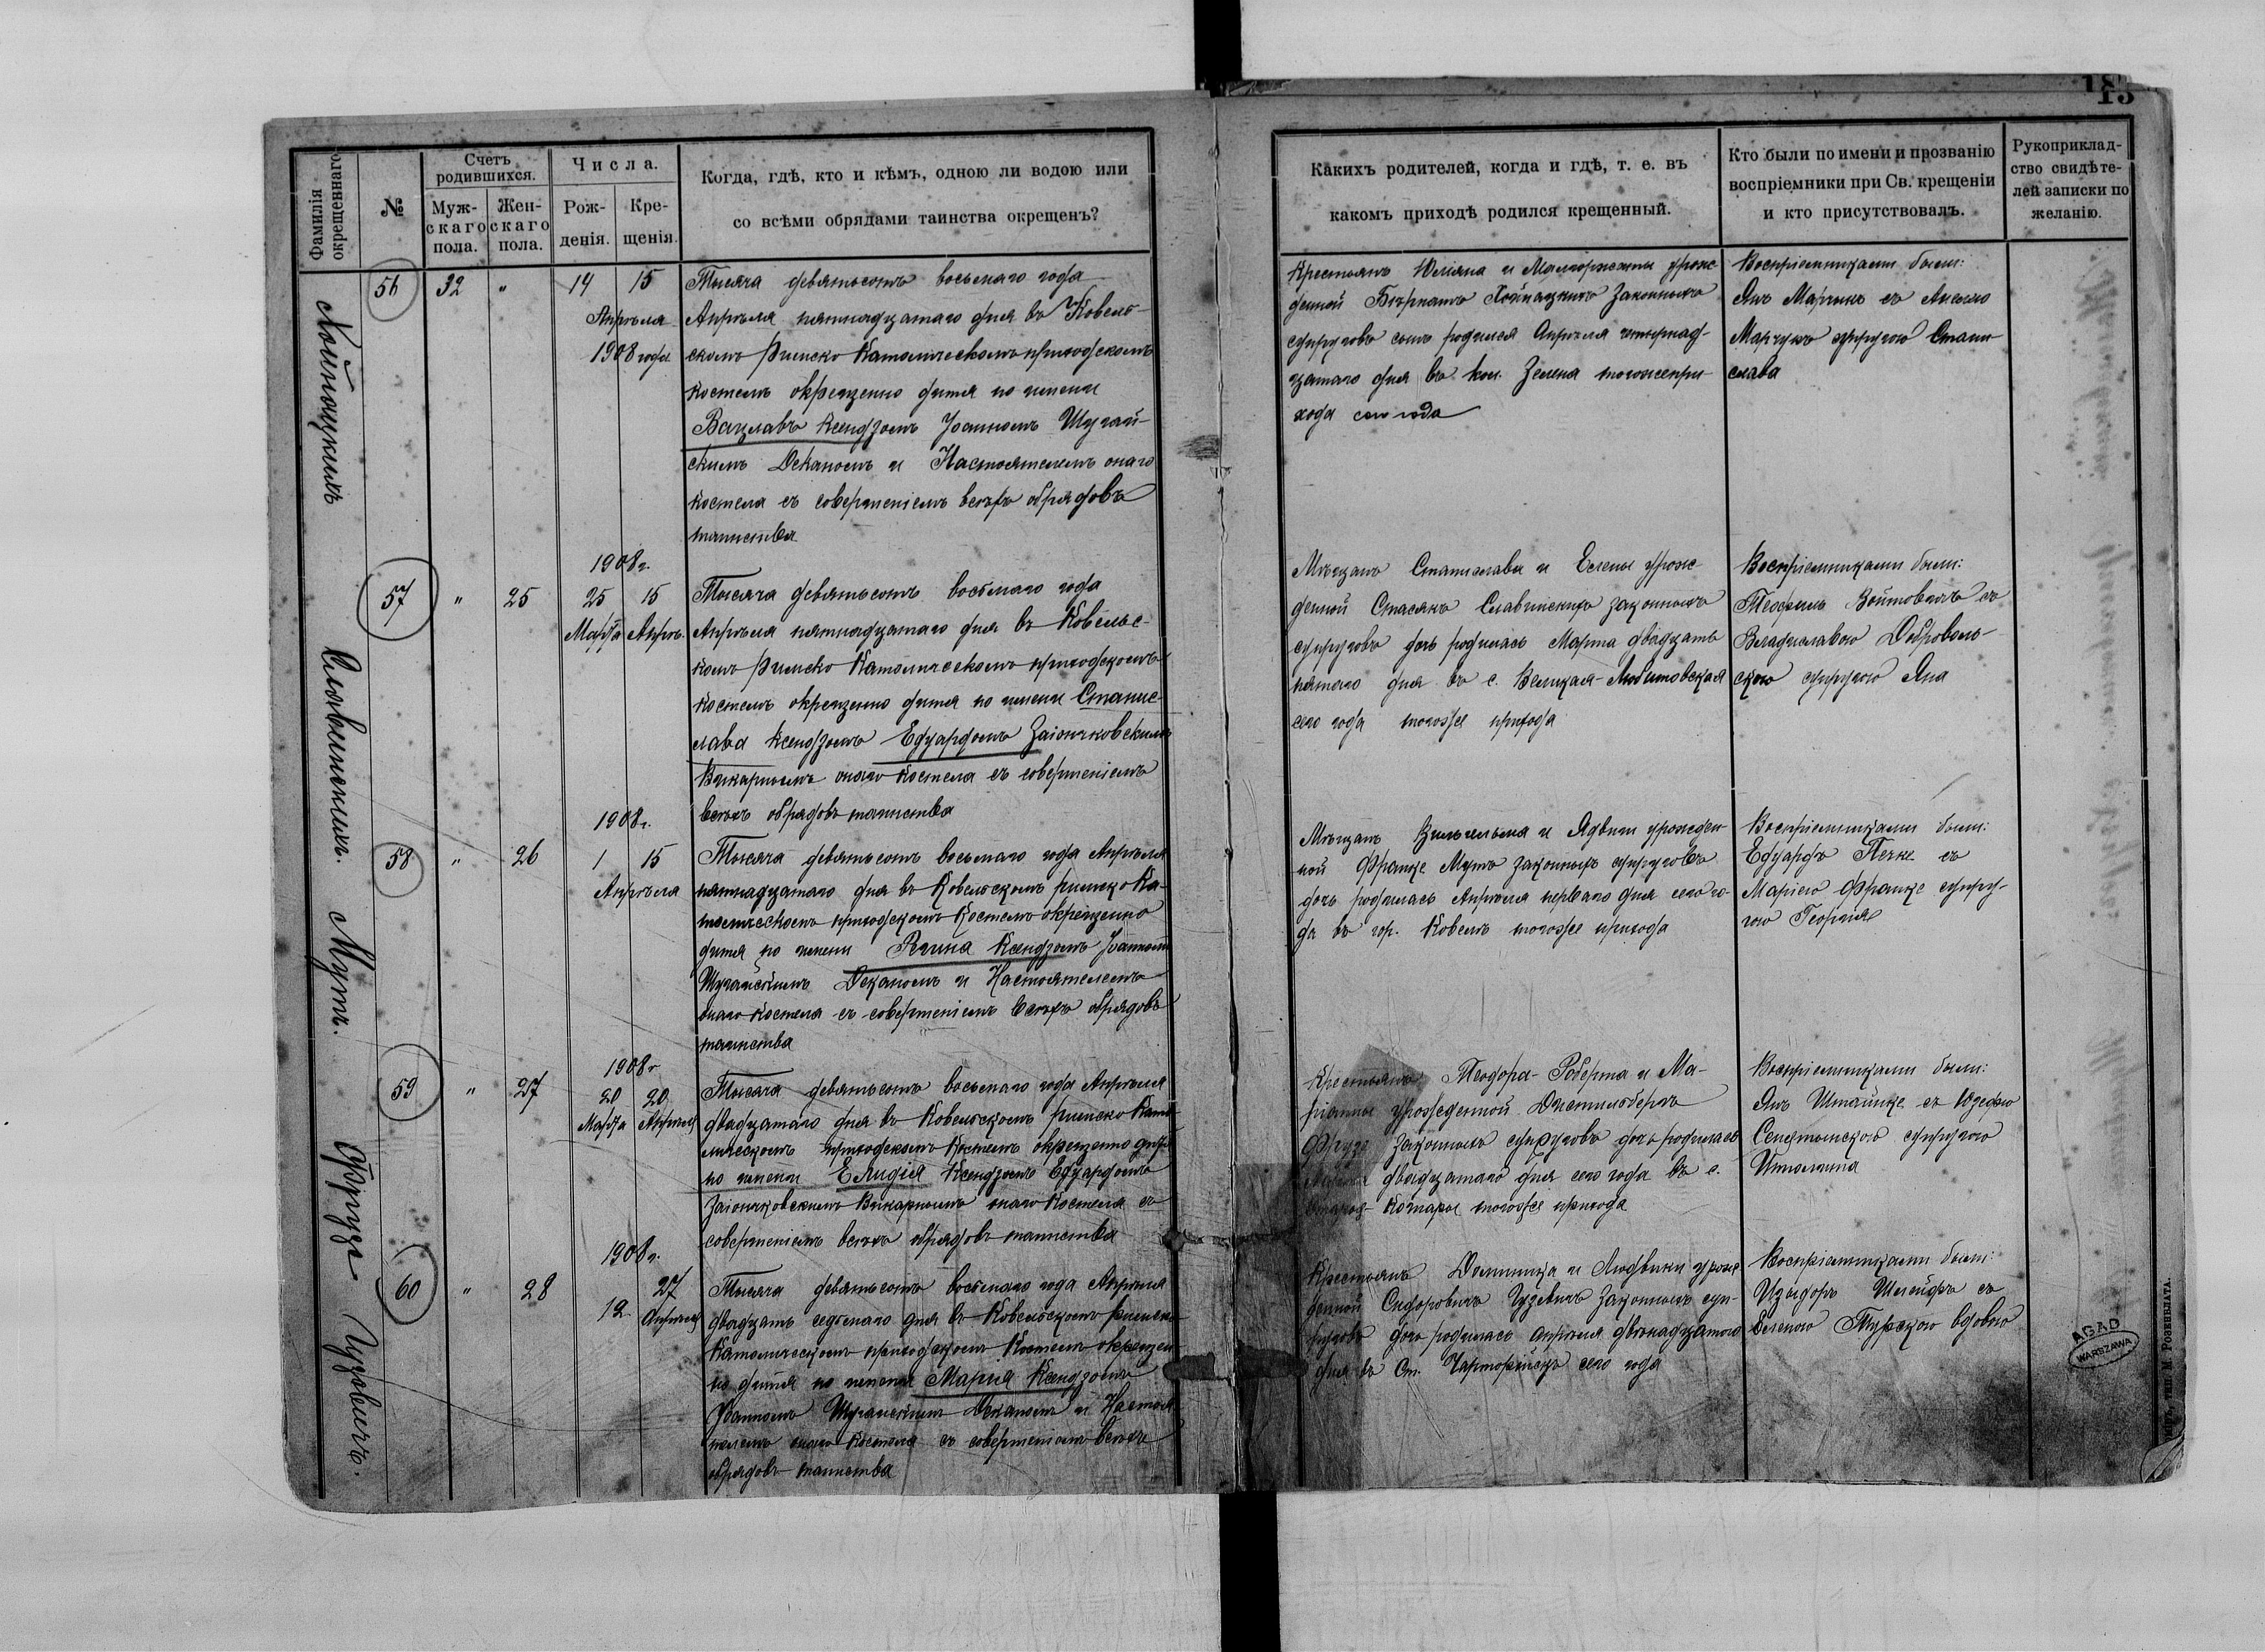 13
Фамилія
окрещеннаго
№
Счетъ
родившихся.
Муж-
скаго
пола.
Жен-
скаго
пола.
Числа.
Рож-
денія.
Кре-
щенія.
Когда, гдѣ, кто и кѣмъ, одною ли водою или
со всѣми обрядами таинства окрещенъ?
Какихъ родителей, когда и гдѣ, т. е. въ
какомъ приходѣ родился крещенный.
Кто были по имени и прозванію
воспріемники при Св. крещеніи
и кто присутствовалъ.
Рукоприклад-
ство свидѣте-
лей записки по
желанію.
56
32
"
14
15
Апрѣля
1908 года
Тысяча девятьсотъ восьмаго года
Апрѣля пятнадцатаго дня въ Ковель-
скомъ Римско Католическомъ приходскомъ
костелѣ окрещенно дитя по имени
Вацлавъ Ксендзомъ Іоанномъ Шугай-
скимъ Деканомъ и Настоятелемъ онаго
костела съ совершеніемъ всѣхъ обрядовъ
таинства
Крестьянъ Юліяна и Малгоржеты урож-
денной Бернатъ Хойнацкихъ законныхъ
супруговъ сынъ родился Апрѣля четырнад-
цатаго дня въ кол. Зелена тогоже при-
хода сего года
Воспріемниками были:
Янъ Марчукъ съ
Марчукъ супругою Стани-
слава
Хойнацкимъ
1908 г.
57
"
25
25
15
Марта Апрѣ.
Тысяча девятьсотъ восьмаго года
Апрѣля пятнадцатаго дня въ Ковельс-
комъ Римско Католическомъ приходскомъ
костелѣ окрещенно дитя по имени Станис-
лава Ксендзомъ Едуардомъ Заіончковскимъ
Викарнымъ онаго Костела съ совершеніемъ
всѣхъ обрядовъ таинства
Мѣщанъ Станислава и Елены урож-
денной Стасякъ Славинскихъ законныхъ
супруговъ дочь родилась Марта двадцать
пятаго дня въ с. Велицкая-Любитовская
сего года тогоже прихода
Воспріемниками были:
Теофиль Войтовичъ съ
Владиславою Доброволь-
скою супругою Яна
Славинскимъ.
1908 г.
58
"
26
1
15
Апрѣля
Тысяча девятьсотъ восьмаго года Апрѣля
пятнадцатаго дня въ Ковельскомъ римско Ка-
толическомъ приходскомъ Костелѣ окрещенно
дитя по имени Регина Ксендзомъ Іоанномъ
Шугайскимъ Деканомъ и Настоятелемъ
онаго Костела съ совершеніемъ всѣхъ обрядовъ
таинства
Мѣщанъ Вильгельма и Ядвиги урожден-
ной Франке Мутъ законныхъ супруговъ
дочь родилась Апрѣля перваго дня сего го-
да въ гор. Ковелѣ тогоже прихода
Воспріемниками были:
Едуардъ съ
Маріею Франке супру-
гою Георгія
Мутъ.
1908 г
59
"
27
20
20
Марта Апрѣля
Тысяча девятьсотъ восьмаго года Апрѣля
двадцатаго дня въ Ковельскомъ римско Като-
лическомъ приходскомъ Костелѣ окрещенно дитя
по имени Елидія Ксендзомъ Едуардомъ
Заіончковскимъ Викарнымъ онаго Костела съ
совершеніемъ всѣхъ обрядовъ таинства
Крестьянъ Теодора-Роберта и Ма-
ріанны урожденной
законныхъ супруговъ дочь родилась
Марта двадцатаго дня сего года въ с.
тогоже прихода
Воспріемниками были:
Янъ съ Юзефою
супругою
1908 г.
60
"
28
12
27
Апрѣля
Тысяча девятьсотъ восьмаго года Апрѣля
двадцать седьмаго дня въ Ковельскомъ римско
Католическомъ приходскомъ Костелѣ окрещен-
но дитя по имени Марія Ксендзомъ
Іоанномъ Шугайскимъ Деканомъ и Настоя-
телемъ онаго Костела съ совершеніемъ всѣхъ
обрядовъ таинства
Крестьянъ Доминика и Людвики урож-
денной Сидоровичъ Гузевичъ законныхъ суп-
руговъ дочь родилась апрѣля двѣнадцатаго
дня въ Ст. Чарторійскъ сего года
Воспріемниками были:
Изыдоръ съ
Еленою Турскою вдовою
Гузевичъ.
AGAD
WARSZAWA
тип. М. Розенблата.